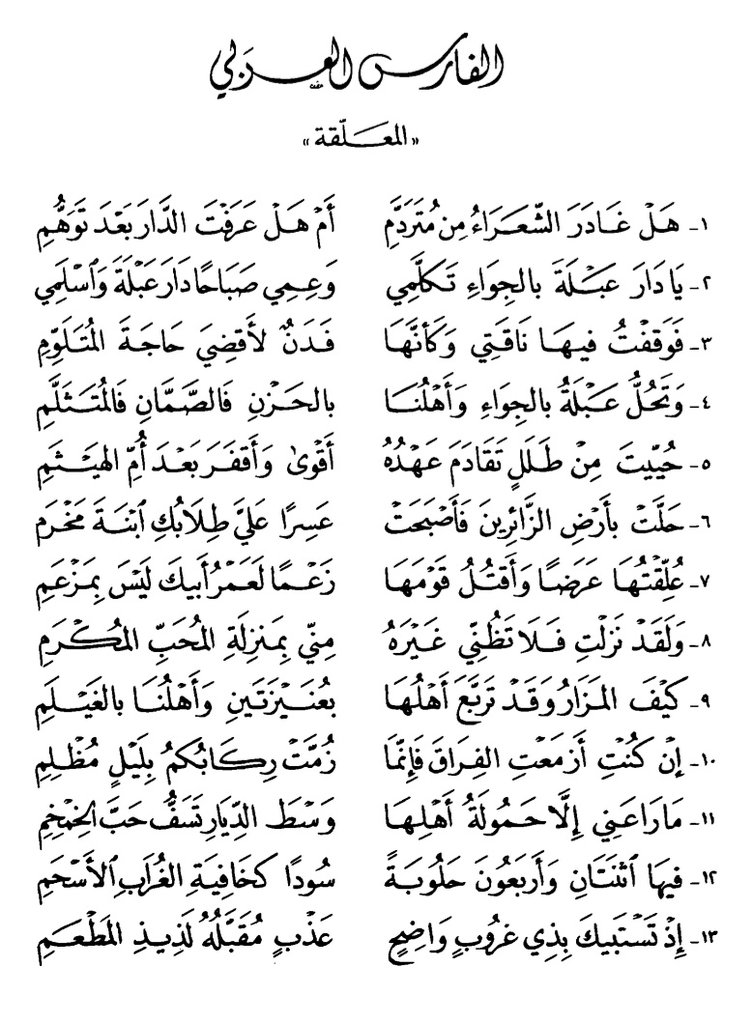 الفارس العربي
«المعلّقة»
١- هَلْ غَادَرَ الشُّعَرَاءُ مِن مُتَرَدَّمِ أَمْ هَلْ عَرَفْتَ الدَّارَ بَعْدَ تَوَهُّمِ
٢- يَا دَارَ عَبْلَةَ بالجِوَاءِ تَكَلَّمِي وَعِمِي صَبَاحًا دَارَ عَبْلَةَ وَاسْلَمِي
٣- فَوَقَفْتُ فِيهَا نَاقَتِي وَكَأنَّهَا فَدَنٌ لأَقْضِيَ حَاجَةَ المُتَلَوِّمِ
٤- وَتَحُلُّ عَبْلَةُ بالجِوَاءِ وَأَهْلُنَا بالحَزْنِ فَالصَّمَّانِ فَالمُتَثَلَّمِ
٥- حُيِّيتَ مِنْ طَلَلٍ تَقَادَمَ عَهْدُهُ أَقْوىٰ وَأَقْفَرَ بَعْدَ أُمِّ الهَيْثَمِ
٦- حَلَّتْ بأَرْضِ الزَّائِرِينَ فَأَصْبَحَتْ عَسِرًا عَلَيَّ طِلَابُكِ ابْنَةَ مَخْرَمِ
٧- عُلِّقْتُهَا عَرَضًا وَأَقْتُلُ قَوْمَهَا زَعْمًا لَعَمْرُ أَبيكَ لَيْسَ بِمَزْعَمِ
٨- وَلَقَدْ نَزَلْتِ فَلَا تَظُنِّي غَيْرَهُ مِنِّي بِمَنزِلَةِ المُحَبِّ المُكْرَمِ
٩- كَيْفَ المَزَارُ وَقَدْ تَرَبَّعَ أَهْلُهَا بعُنَيْزَتَينِ وَأَهْلُنَا بالغَيْلَمِ
١٠- إنْ كُنْتِ أَزمَعْتِ الفِرَاقَ فَإنَّمَا زُمَّتْ رِكَابُكُمُ بِلَيْلٍ مُظْلِمِ
١١- مَا رَاعَنِي إلَّا حَمُولَةُ أَهْلِهَا وَسْطَ الدِّيَارِ تَسَفُّ حَبَّ الخِمْخِمِ
١٢- فِيهَا اثْنَتَانِ وَأَرْبَعُونَ حَلُوبَةً سُودًا كَخَافِيَةِ الغُرَابِ الأَسْحَمِ
١٣- إذْ تَسْتَبِيكَ بِذِي غُرُوبٍ وَاضِحٍ عَذْبٍ مُقَبَّلُهُ لَذِيذِ المَطْعَمِ